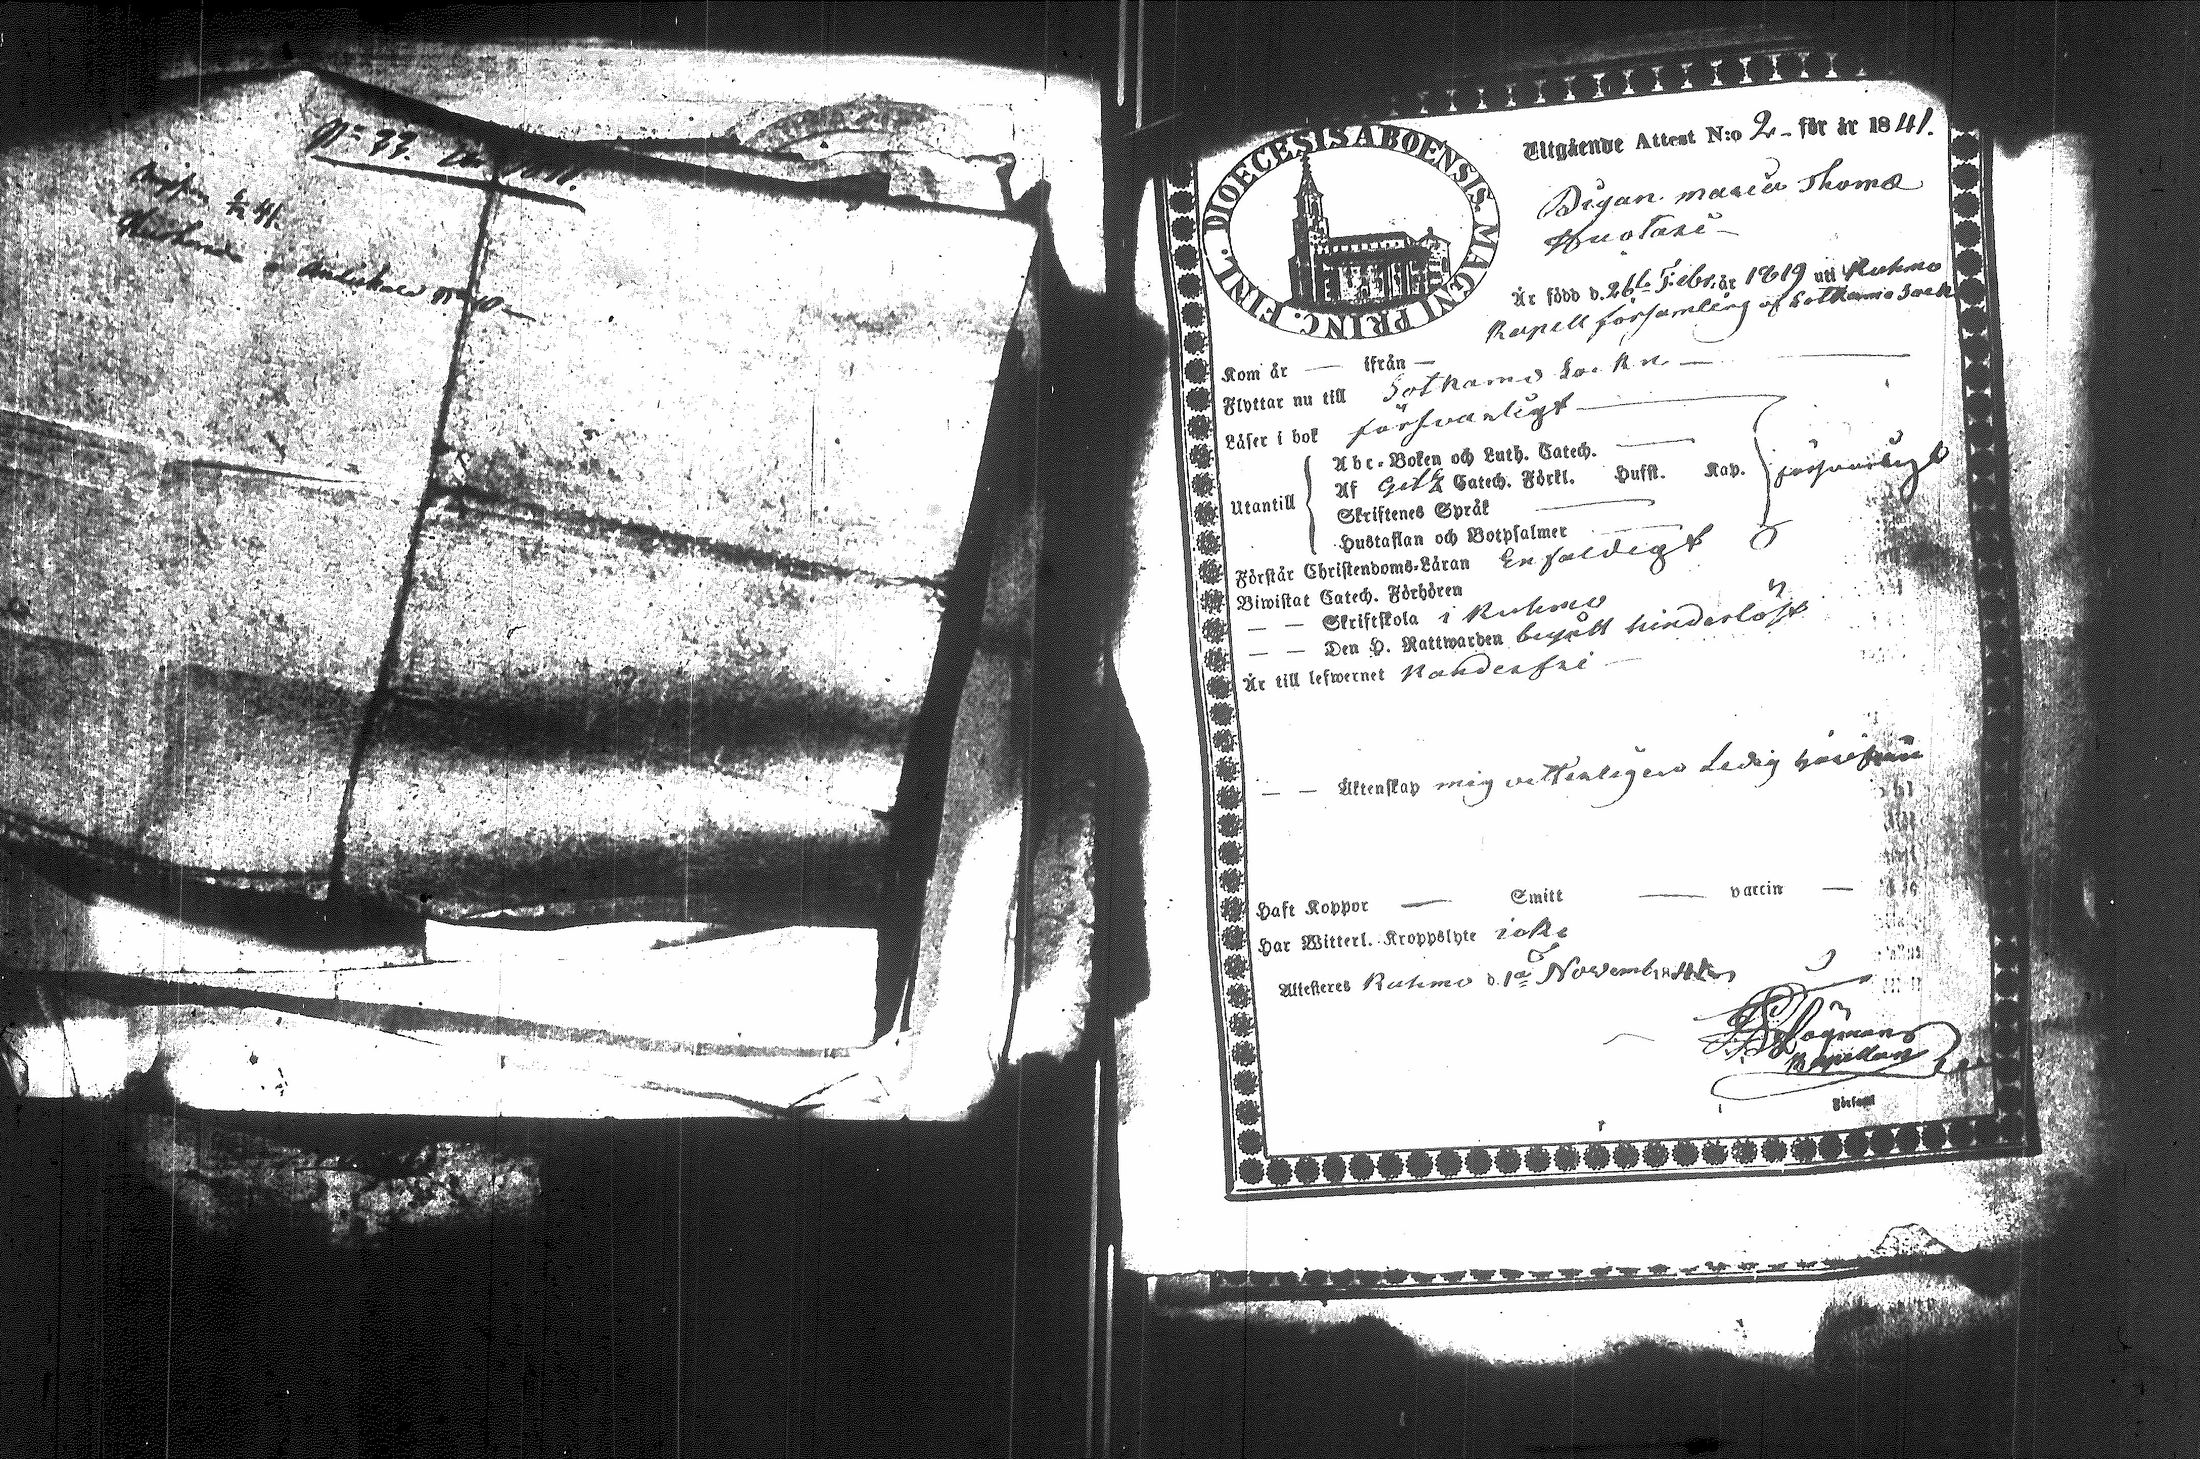 N:o 33.
DIOECESIS ABOENSIS. MAGNI PRINC. FINL.
Utgående Attest N:o 2 för år 1841.
Pigan Maria Thomæ
Huotari
Är född d. 26te Febr. år 1819 uti Kuhmo
Kapell församling af Sotkamo Sockn
Kom år — ifrån —
Flyttar nu till Sotkamo Sockn —
Läser i bok försvarligt
Utantill
Abc-Boken och Luth. Catech. —
Af Catech. Förkl. Hufst. Kap. försvarligt
Skriftenes Språk —
Hustaflan och Botpsalmer —
Förstår Christendoms-Läran Enfaldigt
Biwistat Catech. Förhören
— — Skriftskola i Kuhmo
— — Den H. Nattwarden begått hinderlöst
Är till lefwernet klanderfri —
— — Äktenskap mig vetterligen Ledig
Haft Koppor — Smitt — vaccin —
Har Witterl. Kroppslyte icke
Attesteres Kuhmo d. 1a November 1841
Kapellan
Församl